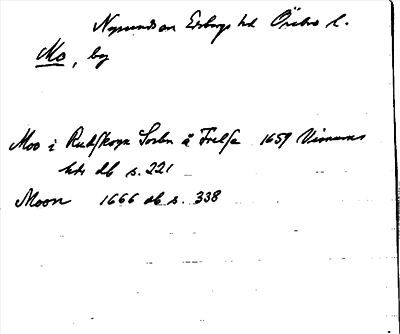 Nysunds sn Edsbergs hd Örebro l.
Mo, by
Moo i Rudskoga Sockn å Frelse 1659 Visnums
hds db s. 221
Moon 1666 db s. 338